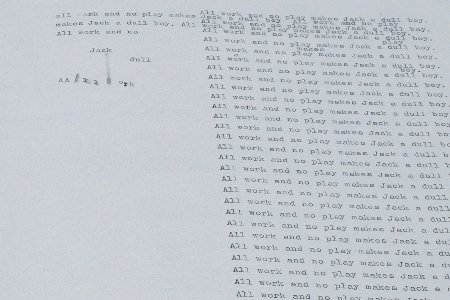 all work and no play makes Jack a dull boy. All work and no play
makes Jack a dull boy. All work and no play makes Jack a dull boy.
All work and no
Jack
dull
All work and no play makes Jack a dull boy.
All work and no play makes Jack a dull boy.
All work and no play makes Jack a dull boy.
All work and no play makes Jack a dull boy.
All work and no play makes Jack a dull boy.
All work and no play makes Jack a dull boy.
All work and no play makes Jack a dull boy.
All work and no play makes Jack a dull boy
All work and no play makes Jack a dull boy
All work and no play makes Jack a dull
All work and no play makes Jack a dull
All work and no play makes Jack a dull
All work and no play makes Jack a dull
All work and no play makes Jack a dull
All work and no play makes Jack a dull
All work and no play makes Jack a dull
All work and no play makes Jack a
All work and no play makes Jack a
All work and no play makes Jack a